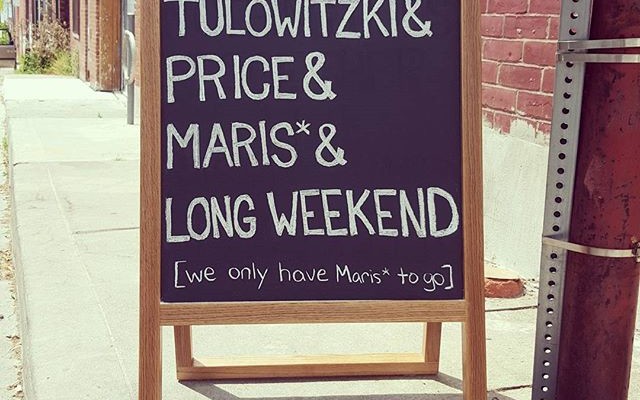 TULOWITZKI &
PRICE &
MARIS* &
LONG WEEKEND
[we only have Maris* to go]